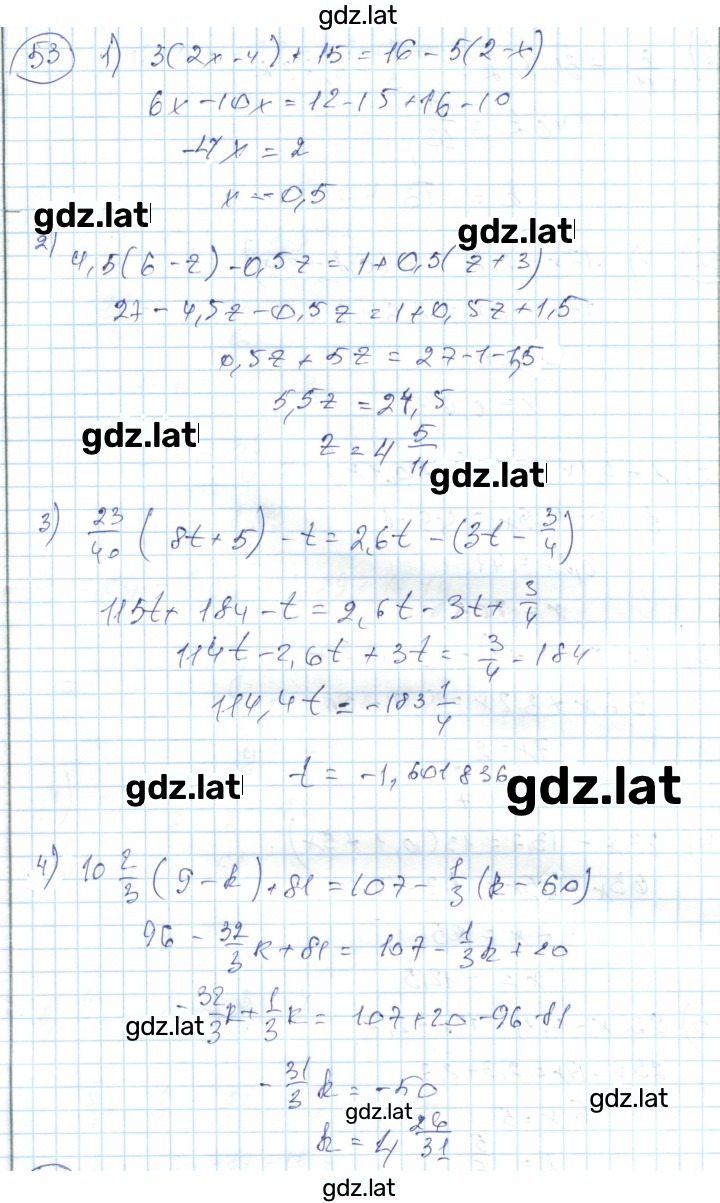 gdz.lat
53 1) 3(2x-4)+15=16-5(2-x)
6x-10x=12-15+16-10
-4x=2
x=-0,5
gdz.lat
gdz.lat
2) 4,5(6-z)-0,5z=1+0,5(z+3)
27-4,5z-0,5z=1+0,5z+1,5
0,5z+5z=27-1-1,5
5,5z=24,5
gdz.lat
z=4 5/11
gdz.lat
3) 23/40(8t+5)-t=2,6t-(3t-3/4)
115t+184-t=2,6t-3t+3/4
114t-2,6t+3t=3/4-184
114,4t=-183 1/4
t=-1,601836
gdz.lat
gdz.lat
4) 10 2/3(9-k)+81=107-1/3(k-60)
96-32/3k+81=107-1/3k+20
-32/3k+1/3k=107+20-96-81
gdz.lat
-31/3k=-50
gdz.lat
gdz.lat
k=4 26/31
gdz.lat